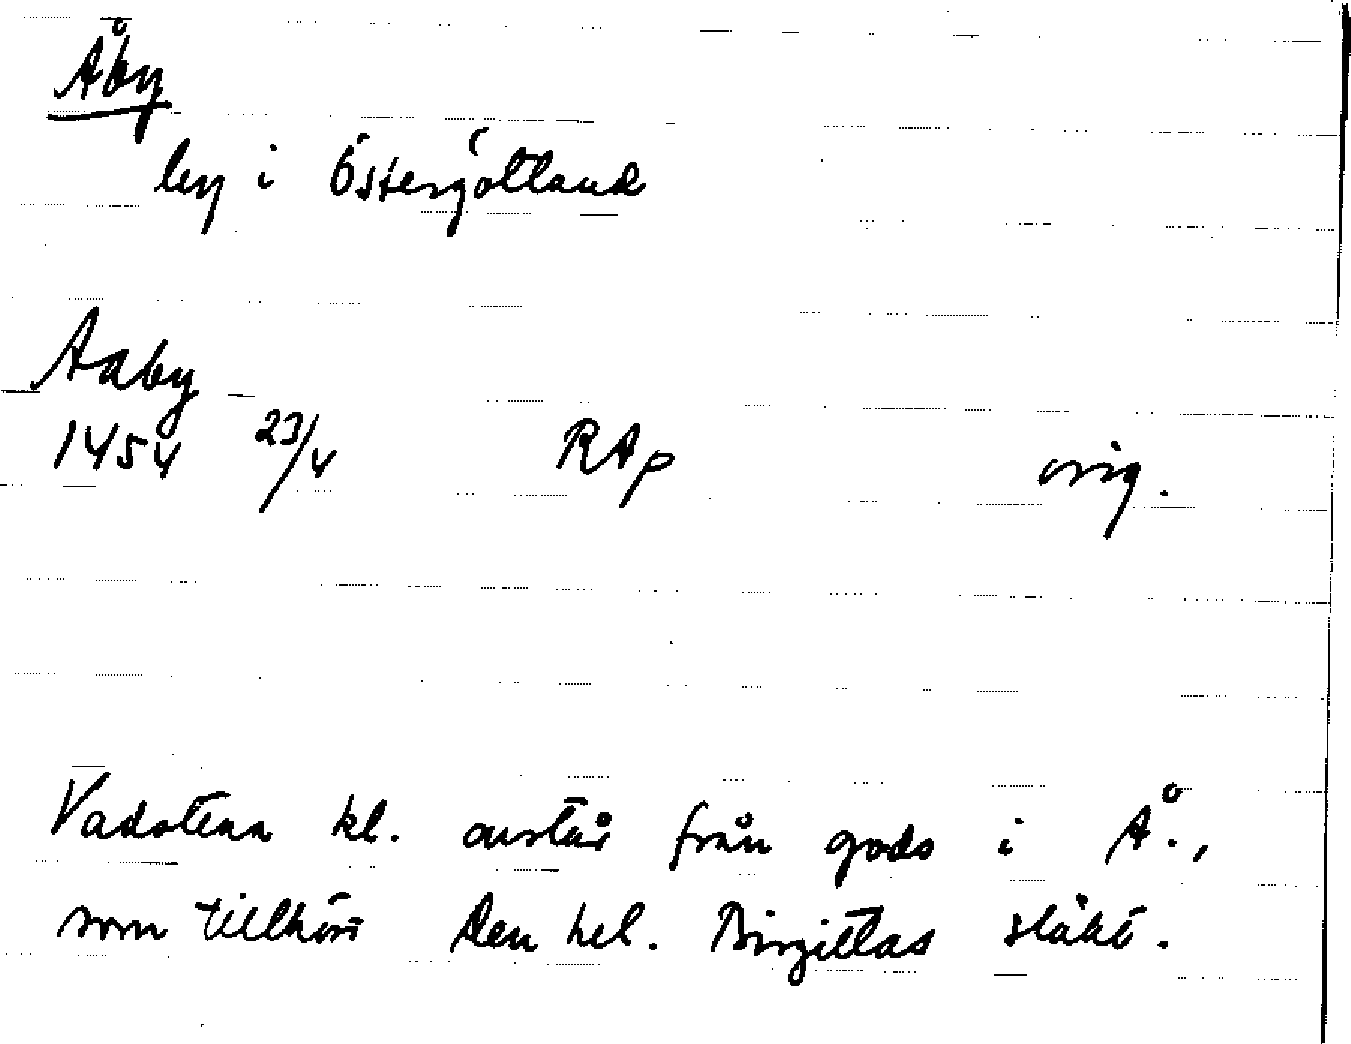 Åby
by i Östergötland
Aaby
1454 23/4 RAp orig.
Vadstena kl. avstår från gods i Å.,
som tillhört Den hel. Birgittas släkt.